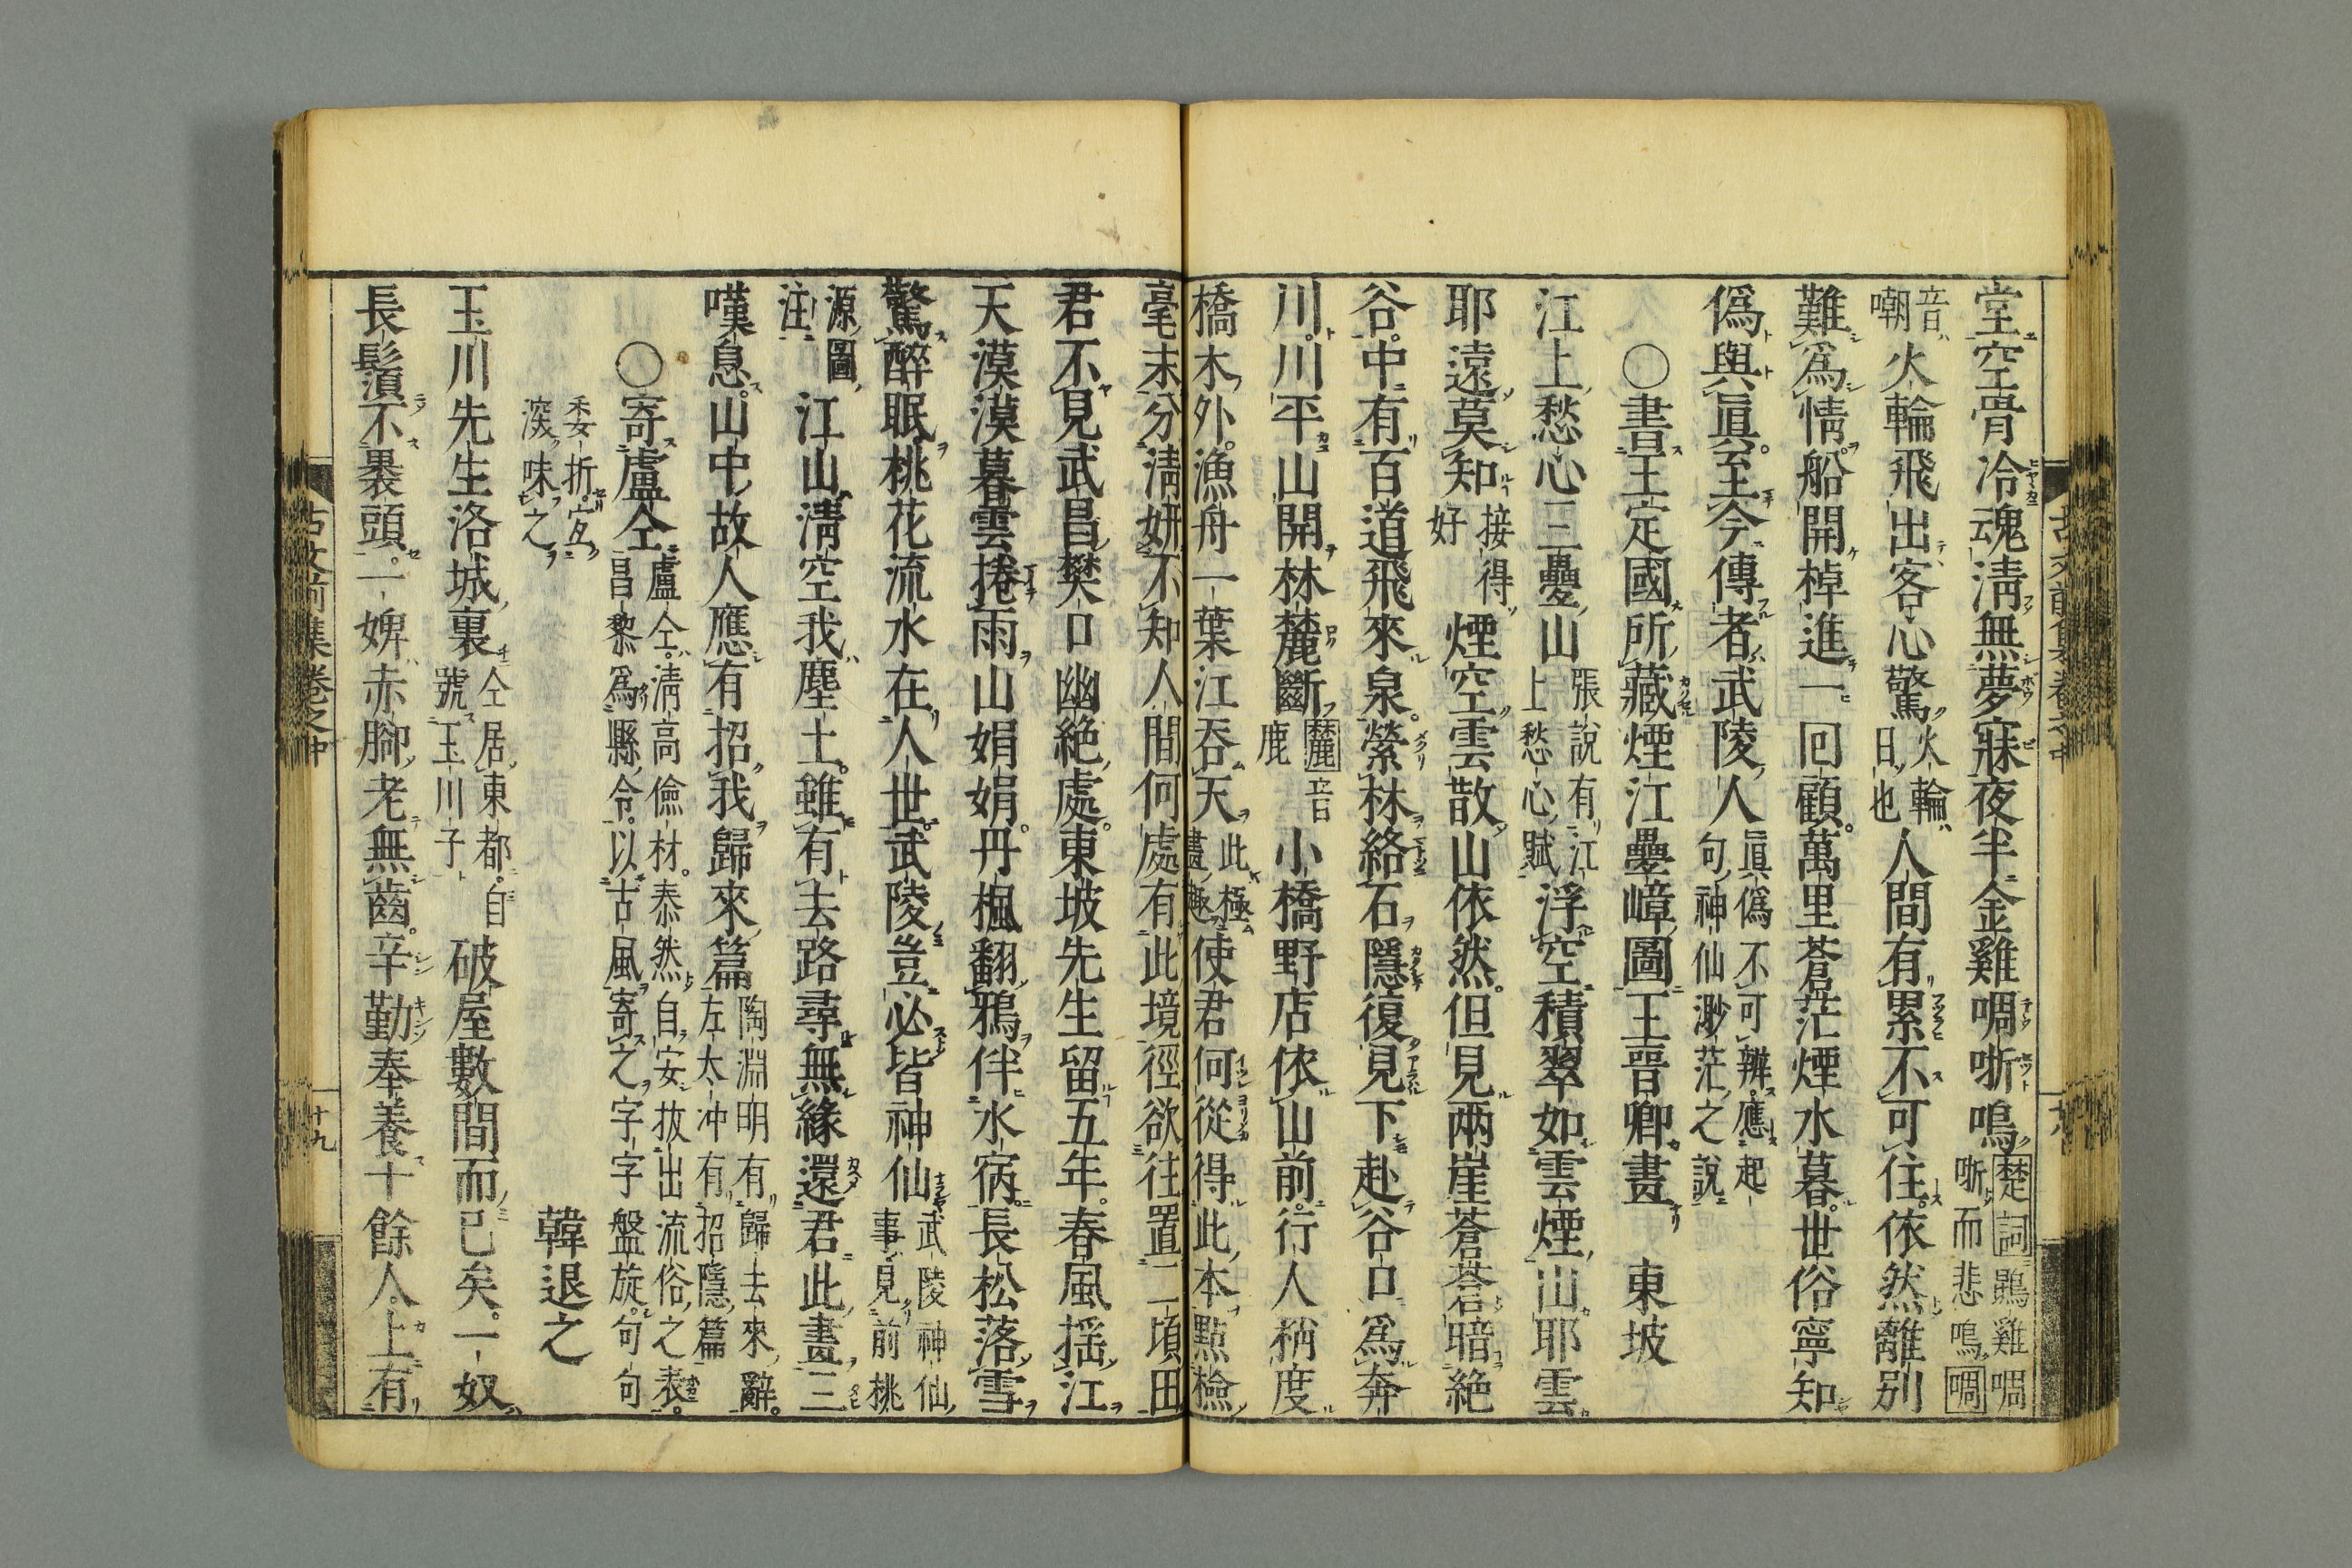 堂空骨冷魂淸無夢寐夜半金雞啁哳鳴楚詞鵾雞啁哳而悲鳴啁
音嘲火輪飛出客心驚火輪日也人間有累不可住依然離別
難爲情船開棹進一回顧萬里蒼茫煙水暮世俗寧知
僞與眞至今傳者武陵人眞僞不可辨應起句神仙渺茫之說
○書王定國所藏煙江疊嶂圖王晉卿畫 東坡
江上愁心三疊山張說有江上愁心賦浮空積翠如雲煙山耶雲
耶遠莫知接得好煙空雲散山依然但見兩崖蒼蒼暗絕
谷中有百道飛來泉縈林絡石隱復見下赴谷口爲奔
川川平山開林麓斷麓音鹿小橋野店依山前行人稍度
橋木外漁舟一葉江吞天此極畫趣使君何從得此本點檢
毫末分淸妍不知人間何處有此境徑欲往置二頃田
君不見武昌樊口幽絕處東坡先生留五年春風搖江
天漠漠暮雲捲雨山娟娟丹楓翻鴉伴水宿長松落雪
驚醉眠桃花流水在人世武陵豈必皆神仙武陵神仙事見前桃
源圖注江山淸空我塵土雖有去路尋無緣還君此畫三
嘆息山中故人應有招我歸來篇陶淵明有歸去來辭左太冲有招隱篇
○寄盧仝盧仝淸高儉材泰然自安拔出流俗之表昌黎爲縣令以古風寄之字字盤旋句句
委折宜深味之 韓退之
玉川先生洛城裏仝居東都自號玉川子破屋數間而已矣一奴
長鬚不裹頭一婢赤脚老無齒辛勤奉養十餘人上有
古文前集卷之中
十九